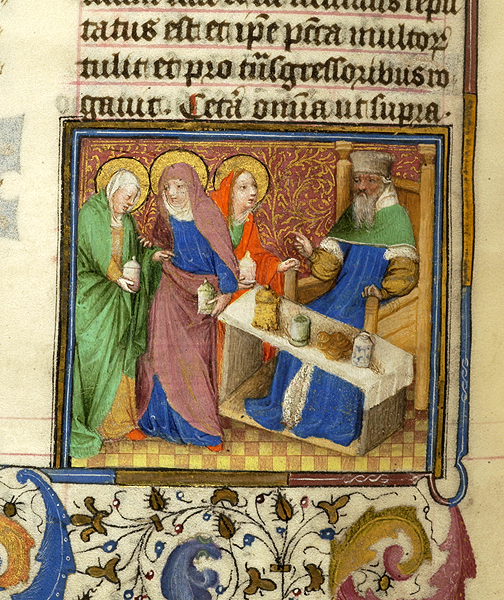 repu
tatus est et ip̄e pc̄ca multoꝝ
tulit et pro tn̄sgressoribus ro
gauit. Cet̄a om̄ia ut supra.